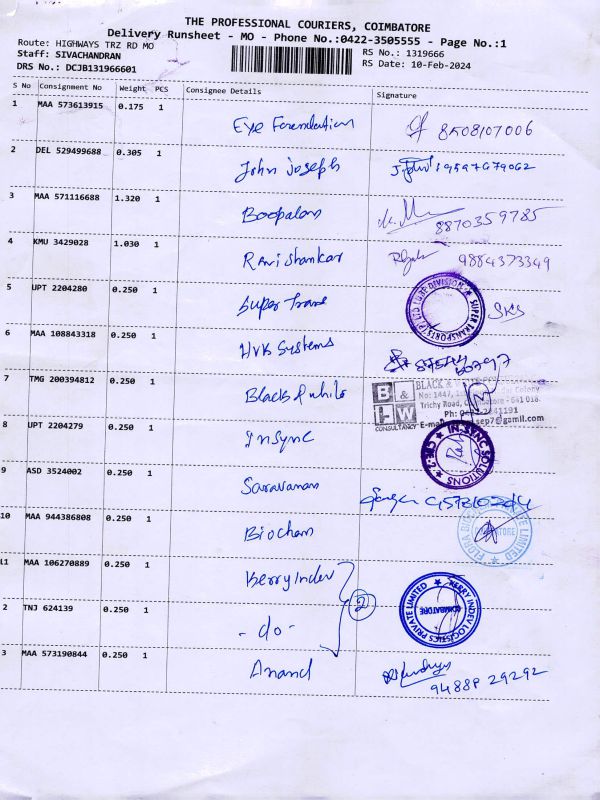 THE PROFESSIONAL COURIERS, COIMBATORE
Delivery Runsheet - MO - Phone No.:0422-3505555 - Page No.:1
Route: HIGHWAYS TRZ RD MO
Staff: SIVACHANDRAN
DRS No.: DCJB131966601
RS No.: 1319666
RS Date: 10-Feb-2024
S No Consignment No Weight PCS Consignee Details Signature
1 MAA 573613915 0.175 1 Eye Foundation 8508107006
2 DEL 529499688 0.305 1 John Joseph 9597679062
3 MAA 571116688 1.320 1 Boopalan 8870359785
4 KMU 3429028 1.030 1 Ravishankar 9884373349
5 UPT 2204280 0.250 1 Super Trans
SUPER TRANSPORTS (P) LTD DIVISION SKS
6 MAA 108843318 0.250 1 HVK Systems
7 TMG 200394812 0.250 1 Black & white
B & W CONSULTANCY
BLACK &
No: 1447, Colony
Trichy Road, Coimbatore - 641 018.
Ph: 0422-2341191
E-mail sep7@gamil.com
8 UPT 2204279 0.250 1 Insync
IN-SYNC SOLUTIONS CBE-2
9 ASD 3524002 0.250 1 Saravanan
10 MAA 944386808 0.250 1 Biocham
FLORA LIMITED
11 MAA 106270889 0.250 1 Kerry Indev
KERRY INDEV LOGISTICS PRIVATE LIMITED COIMBATORE
2
2 TNJ 624139 0.250 1 - do -
3 MAA 573190844 0.250 1 Anand 94888 29292